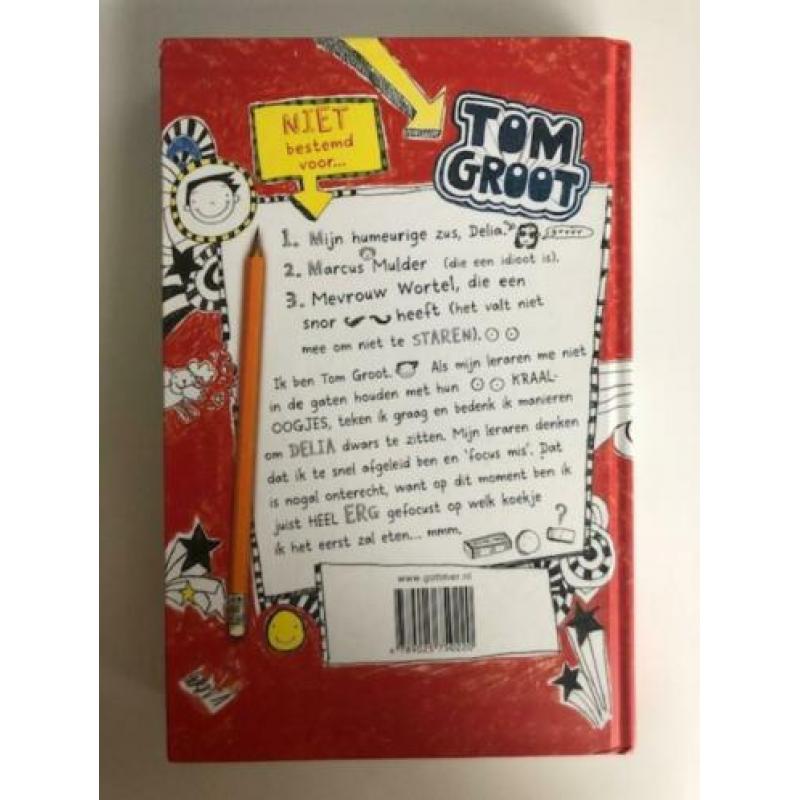 NIET
bestemd
voor...
TOM
GROOT
1. Mijn humeurige zus, Delia.
2. Marcus Mulder (die een idioot is).
3. Mevrouw Wortel, die een
snor heeft (het valt niet
mee om niet te STAREN).
Ik ben Tom Groot. Als mijn leraren me niet
in de gaten houden met hun KRAAL-
OOGJES, teken ik graag en bedenk ik manieren
om DELIA dwars te zitten. Mijn leraren denken
dat ik te snel afgeleid ben en 'focus mis'. Dat
is nogal onterecht, want op dit moment ben ik
juist HEEL ERG gefocust op welk koekje
ik het eerst zal eten... mmm.
?
www.gottmer.nl